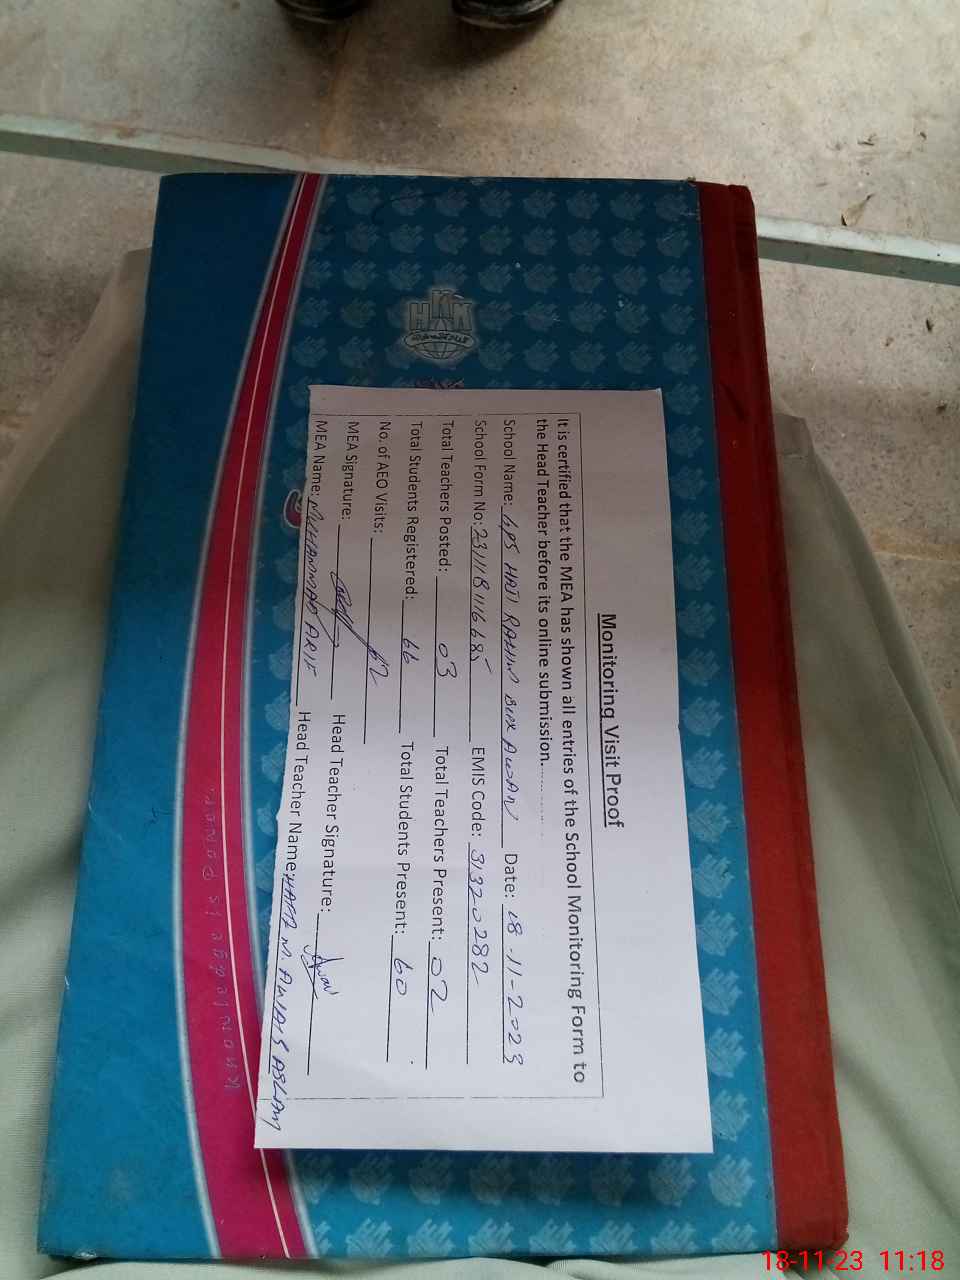 Monitoring Visit Proof
It is certified that the MEA has shown all entries of the School Monitoring Form to
the Head Teacher before its online submission..........
School Name: GPS HAJI RAHIM BUX AWAN Date: 18-11-2023
School Form No: 231118116685 EMIS Code: 31320282
Total Teachers Posted: 03 Total Teachers Present: 02
Total Students Registered: 66 Total Students Present: 60
No. of AEO Visits: 02
MEA Signature: Head Teacher Signature: Awan
MEA Name: MUHAMMAD ARIF Head Teacher Name: HAFIZ M. AWAIS ASLAM
HKN
Knowledge is Power
18-11-23 11:18